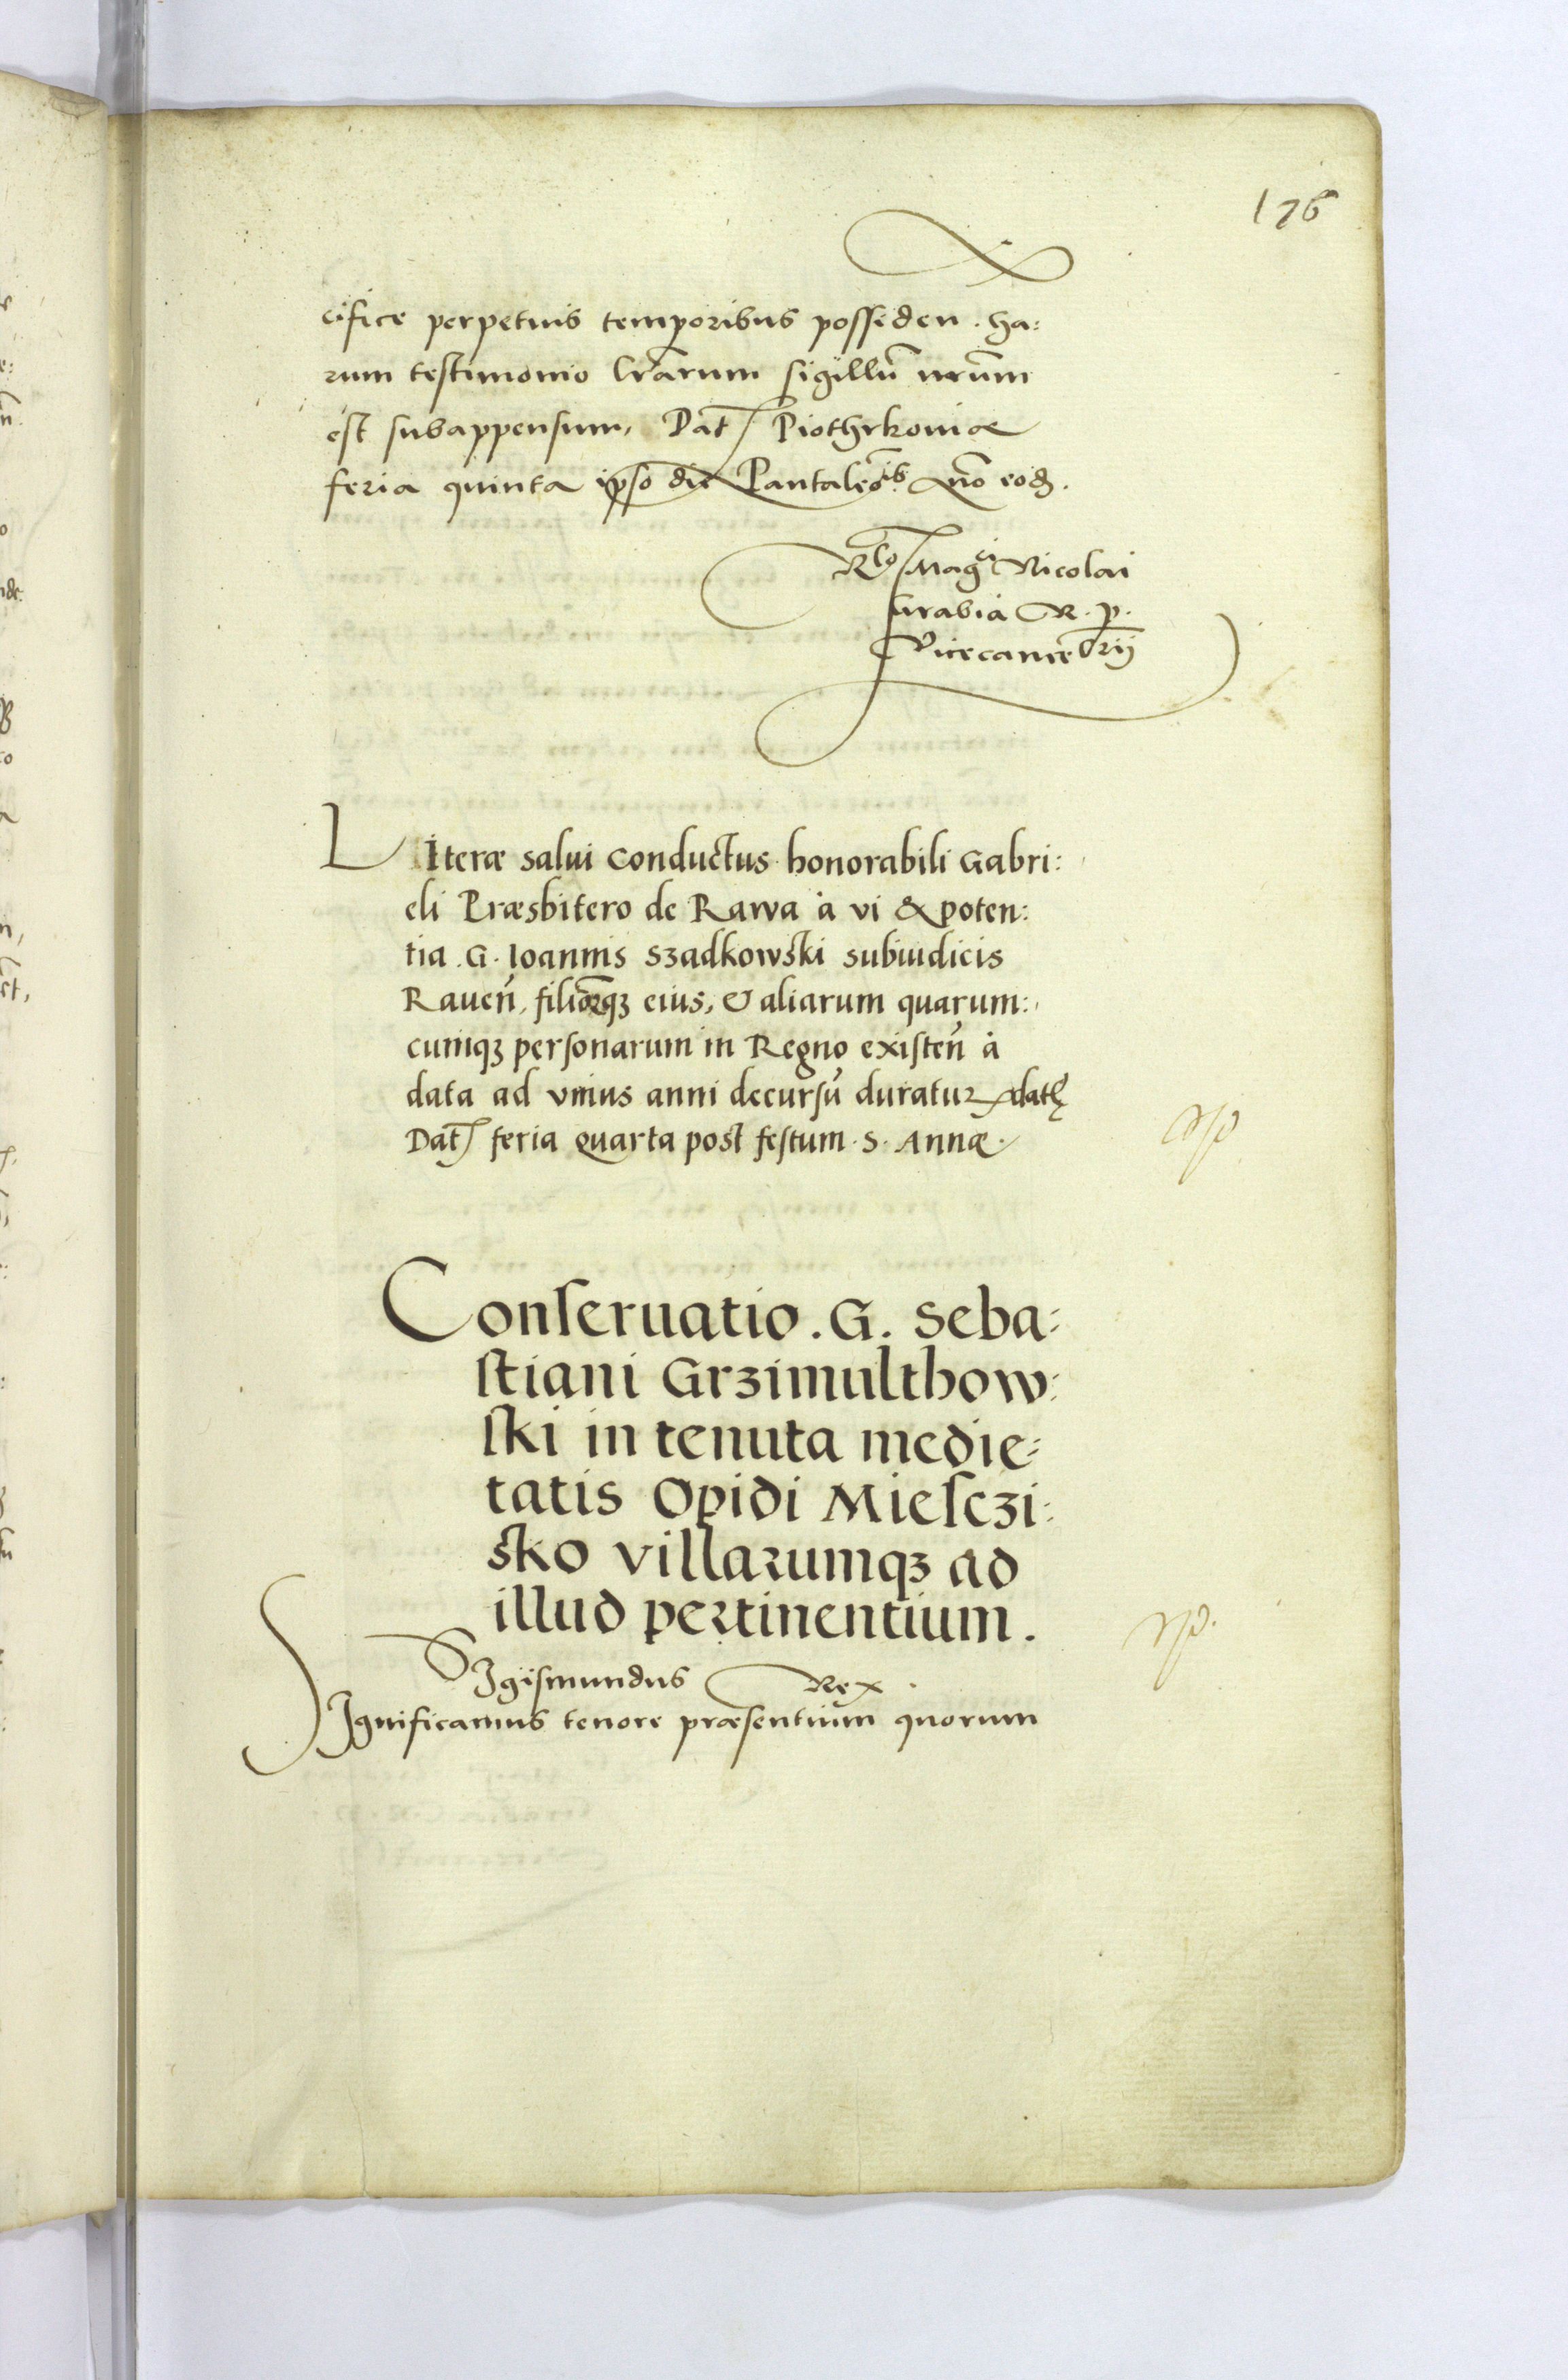 176
cifice perpetuis temporibus possiden. ha:
rum testimonio lr̃arum sigillũ nr̃um
est subappensum, Dat Piothrkoviæ
feria quinta ipso die Pantaleõis Año eod.
Rlo Magci Nicolai
Grabia R. p.
Vicecancellarij
LIteræ salui conductus honorabili Gabri:
eli Præsbitero de Rawa à vi & poten:
tia .G. Ioannis Szadkowski subiudicis
Raueñ, filiorqꝫ eius, & aliarum quarum:
cumqꝫ personarum in Regno existeñ à
data ad vnius anni decursũ duratur datę
Dat feria quarta post festum .S. Annæ.
Conseruatio .G. Seba:
stiani Grzimulthow:
ski in tenuta medie:
tatis Opidi Miesczi:
sko villarumqꝫ ad
illud pertinentium.
SIgismundus Rex.
SIgnificamus tenore præsentium quorum